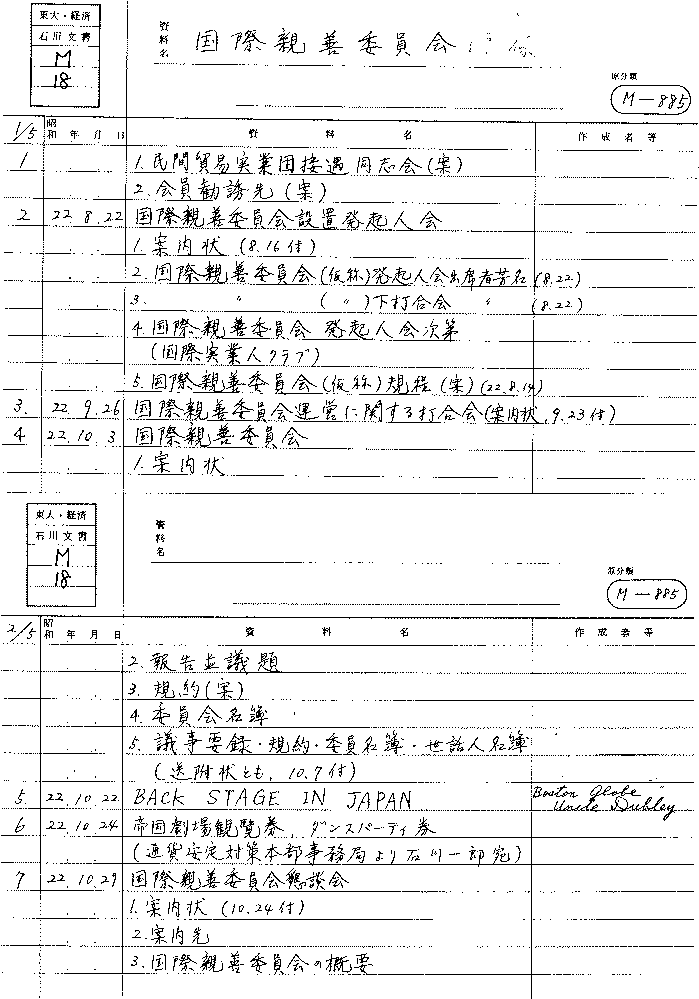 東大・経済
石川文書
M
18
資料名 国際親善委員会
原分類
M-885
1/5 昭和 年 月 日 資料名 作成者等
1 1. 民間貿易実業団接遇同志会(案)
2. 会員勧誘先(案)
2 22 8.22 国際親善委員会設置発起人会
1. 案内状 (8.16付)
2. 国際親善委員会(仮称)発起人会出席者芳名 (8.22)
3. 〃 ( 〃 )下打合会 〃 (8.22)
4. 国際親善委員会 発起人会次第
(国際実業人クラブ)
5. 国際親善委員会(仮称)規程(案)(22.8.14)
3. 22. 9.26 国際親善委員会運営に関する打合会(案内状, 9.23付)
4 22.10.3 国際親善委員会
1. 案内状
東大・経済
石川文書
M
18
資料名
原分類
M-885
2/5 昭和 年 月 日 資料名 作成者等
2. 報告並議題
3. 規約(案)
4. 委員会名簿
5. 議事要録・規約・委員名簿・世話人名簿
(送附状とも, 10.7付)
5. 22.10.22 BACK STAGE IN JAPAN Boston Globe
Uncle Dudley
6 22.10.24 帝国劇場観覧券, ダンスパーティ券
(通貨安定対策本部事務局より石川一郎宛)
7 22.10.29 国際親善委員会懇談会
1. 案内状 (10.24付)
2. 案内先
3. 国際親善委員会の概要